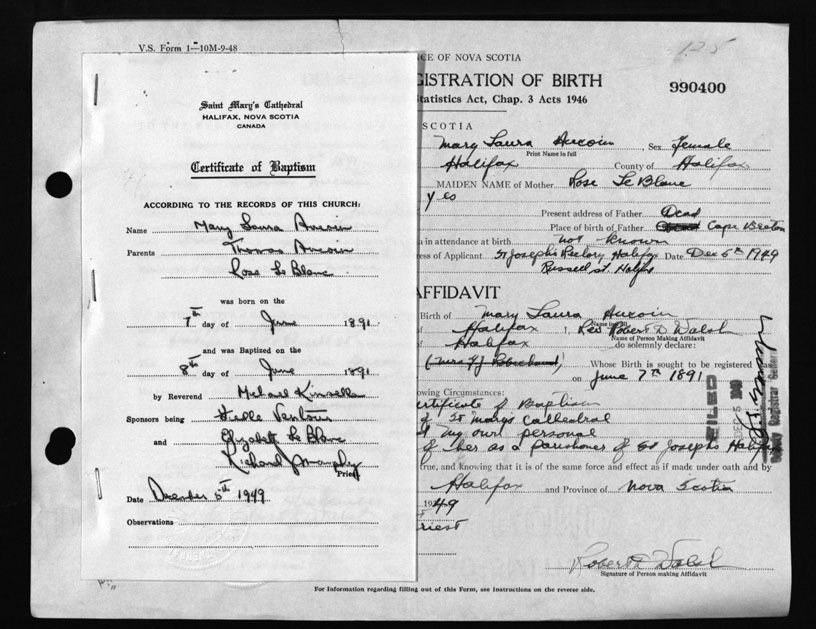 V.S. Form 1—10M-9-48
Saint Mary's Cathedral
HALIFAX, NOVA SCOTIA
CANADA
Certificate of Baptism
ACCORDING TO THE RECORDS OF THIS CHURCH:
Name Mary Laura Aucoin
Parents Thomas Aucoin
Rose Le Blanc
was born on the
7th day of June 1891
and was Baptized on the
8th day of June 1891
by Reverend Michael Kinsella
Sponsors being Ventour
and Elizabeth Le Blanc
Richard J Murphy
Priest
Date December 5th 1949
Observations
125
CE OF NOVA SCOTIA
GISTRATION OF BIRTH
990400
Statistics Act, Chap. 3 Acts 1946
SCOTIA
Mary Laura Aucoin Sex Female
Print Name in full
Halifax County of Halifax
MAIDEN NAME of Mother Rose Le Blanc
Yes
Present address of Father Dead
Place of birth of Father Cape Breton
n in attendance at birth not known
ess of Applicant St Joseph's Rectory Halifax Date Dec 5th 1949
Russell St. Halifax
AFFIDAVIT
Birth of Mary Laura Aucoin
Halifax I, Rev Robert D Walsh
Name of Person Making Affidavit
Halifax do solemnly declare:
Whose Birth is sought to be registered was
on June 7th 1891
owing Circumstances:
ertificate of Baptism
of St Marys Cathedral
my own personal
of her as a parishoner of St Josephs Halifax
true, and knowing that it is of the same force and effect as if made under oath and by
Halifax and Province of Nova Scotia
1949
riest
FILED
DEC 5
Deputy Registrar General
Robert D Walsh
Signature of Person making Affidavit
For Information regarding filling out of this Form, see instructions on the reverse side.